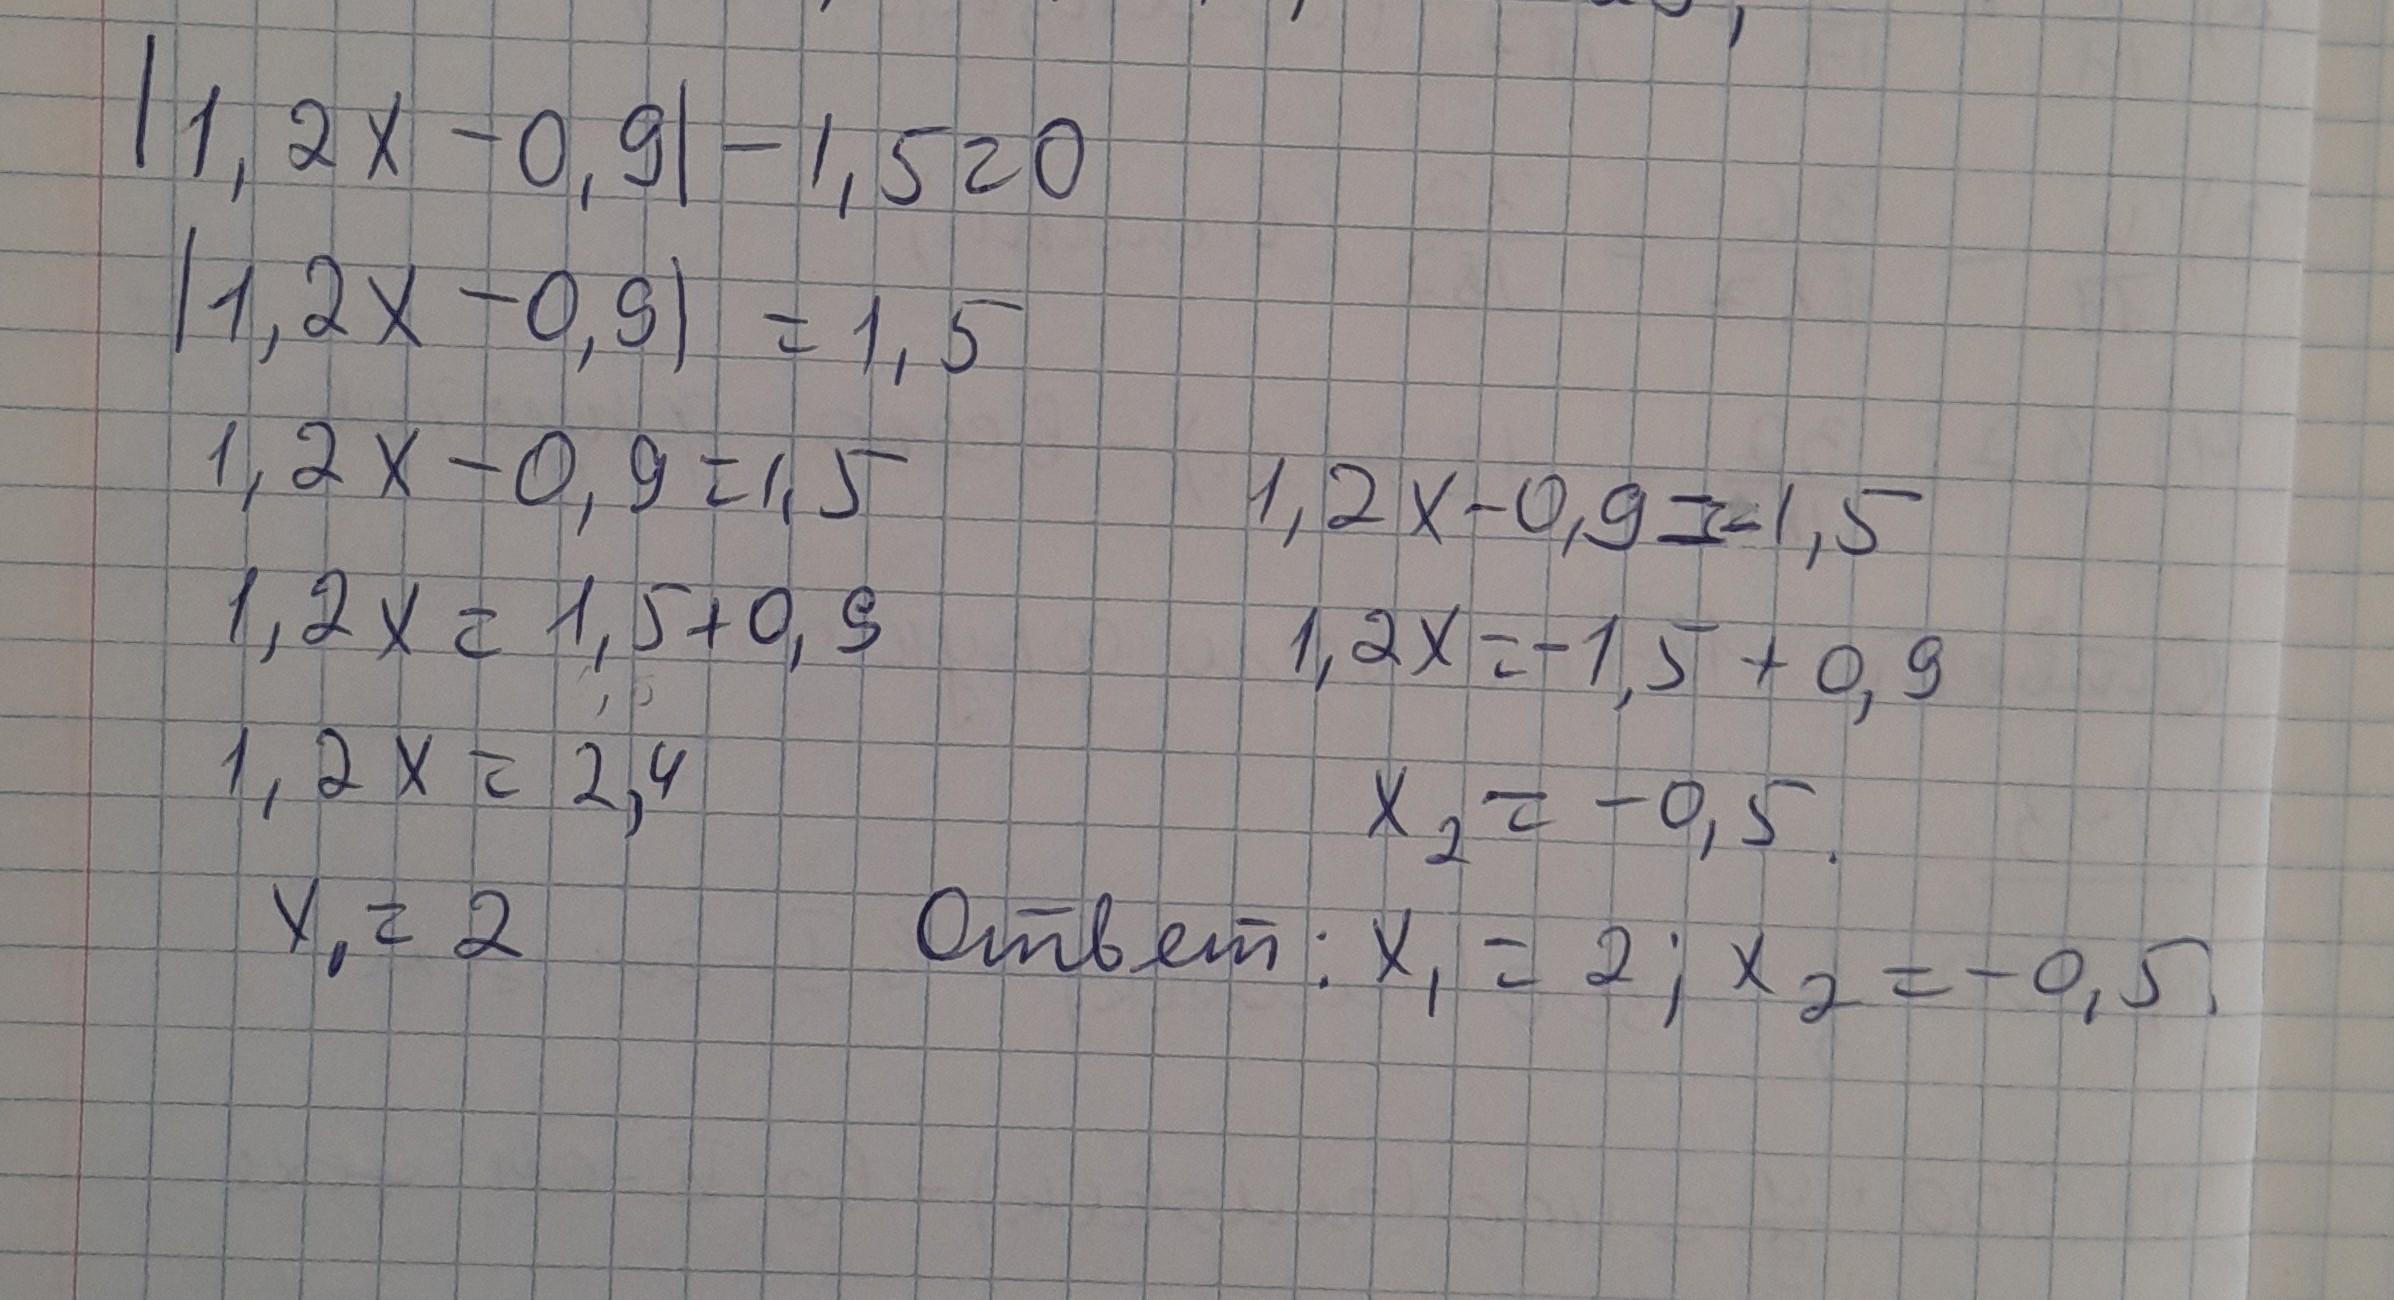 |1,2x-0,9|-1,5=0
|1,2x-0,9| =1,5
1,2x-0,9=1,5
1,2x-0,9=-1,5
1,2x=1,5+0,9
1,2x=-1,5+0,9
1,2x=2,4
x₂=-0,5.
x₁=2
Ответ: x₁=2; x₂=-0,5.